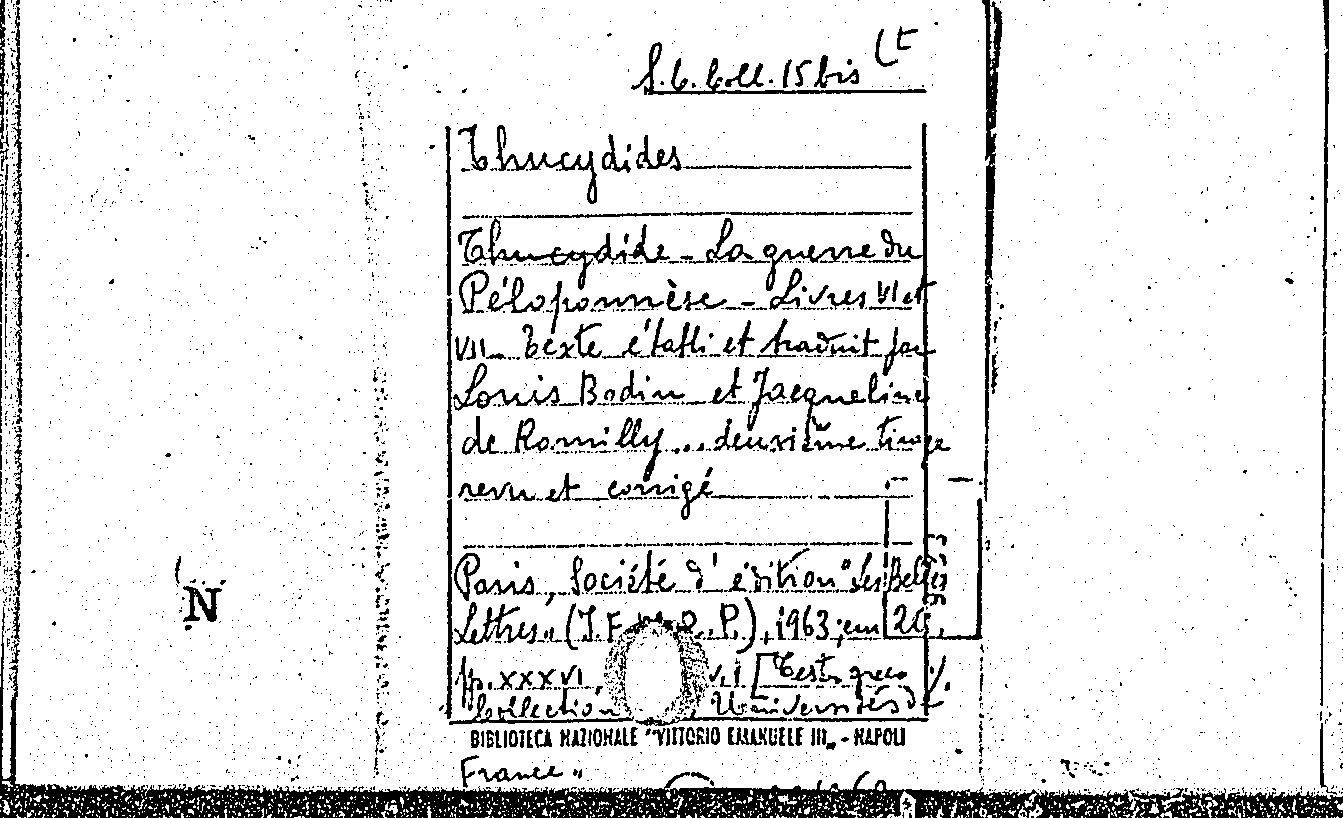 S.C. Coll. 15 bis (t
Thucydides
Thucydide - La guerre du
Péloponnèse - Livres VI et
VII. Texte établi et traduit par
Louis Bodin et Jacqueline
de Romilly... deuxième tirage
revu et corrigé
Paris, Société d'édition "Les Belles
Lettres" (I.F. P.), 1963; cm 20,
pp. XXXVI, v.i. [Testo greco
Collection Universités de
BIBLIOTECA NAZIONALE "VITTORIO EMANUELE III" - NAPOLI
France"
N